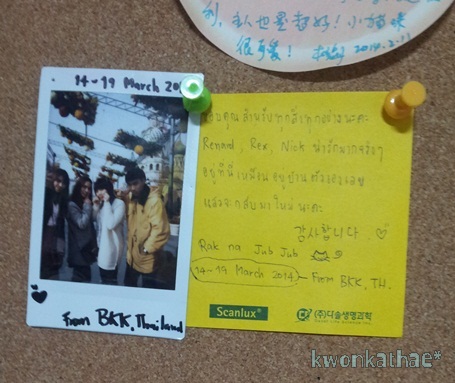 很可爱! 2014.2.11
14-19 March 20
From BKK, Thailand
ขอบคุณสำหรับทุกสิ่งทุกอย่างนะคะ
Renaud, Rex, Nick น่ารักมากจริงๆ
อยู่ที่นี่เหมือนอยู่บ้านตัวเองเลย
แล้วจะกลับมาใหม่นะคะ
감사합니다
Rak na Jub Jub
14-19 March 2014 - From BKK, TH.
Scanlux®
(주)다솔생명과학
kwonkathae*